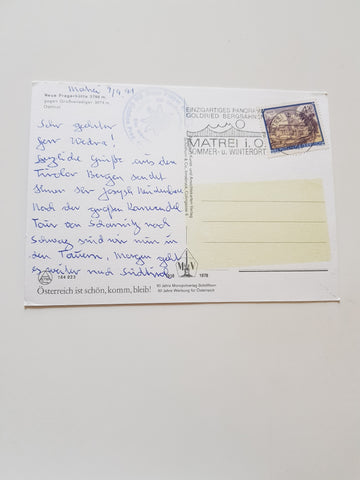 Matrei 9/9.91
Neue Pragerhütte 2796 m
gegen Großvenediger 3674 m
Osttirol
EINZIGARTIGES PANORAMA
GOLDRIED BERGBAHNEN
MATREI i. O.
SOMMER- u. WINTERORT
Sehr geehrter
Herr Wedra!
Herzliche Grüße aus den
Tiroler Bergen sendet
Ihnen der Joseph
Nach der großen Karwendel
Tour von Scharnitz nach
Schwaz sind wir nun in
den Tauern, Morgen geht
es weiter nach Südtirol
164 023
1978
Österreich ist schön, komm, bleib!
50 Jahre Werbung für Österreich